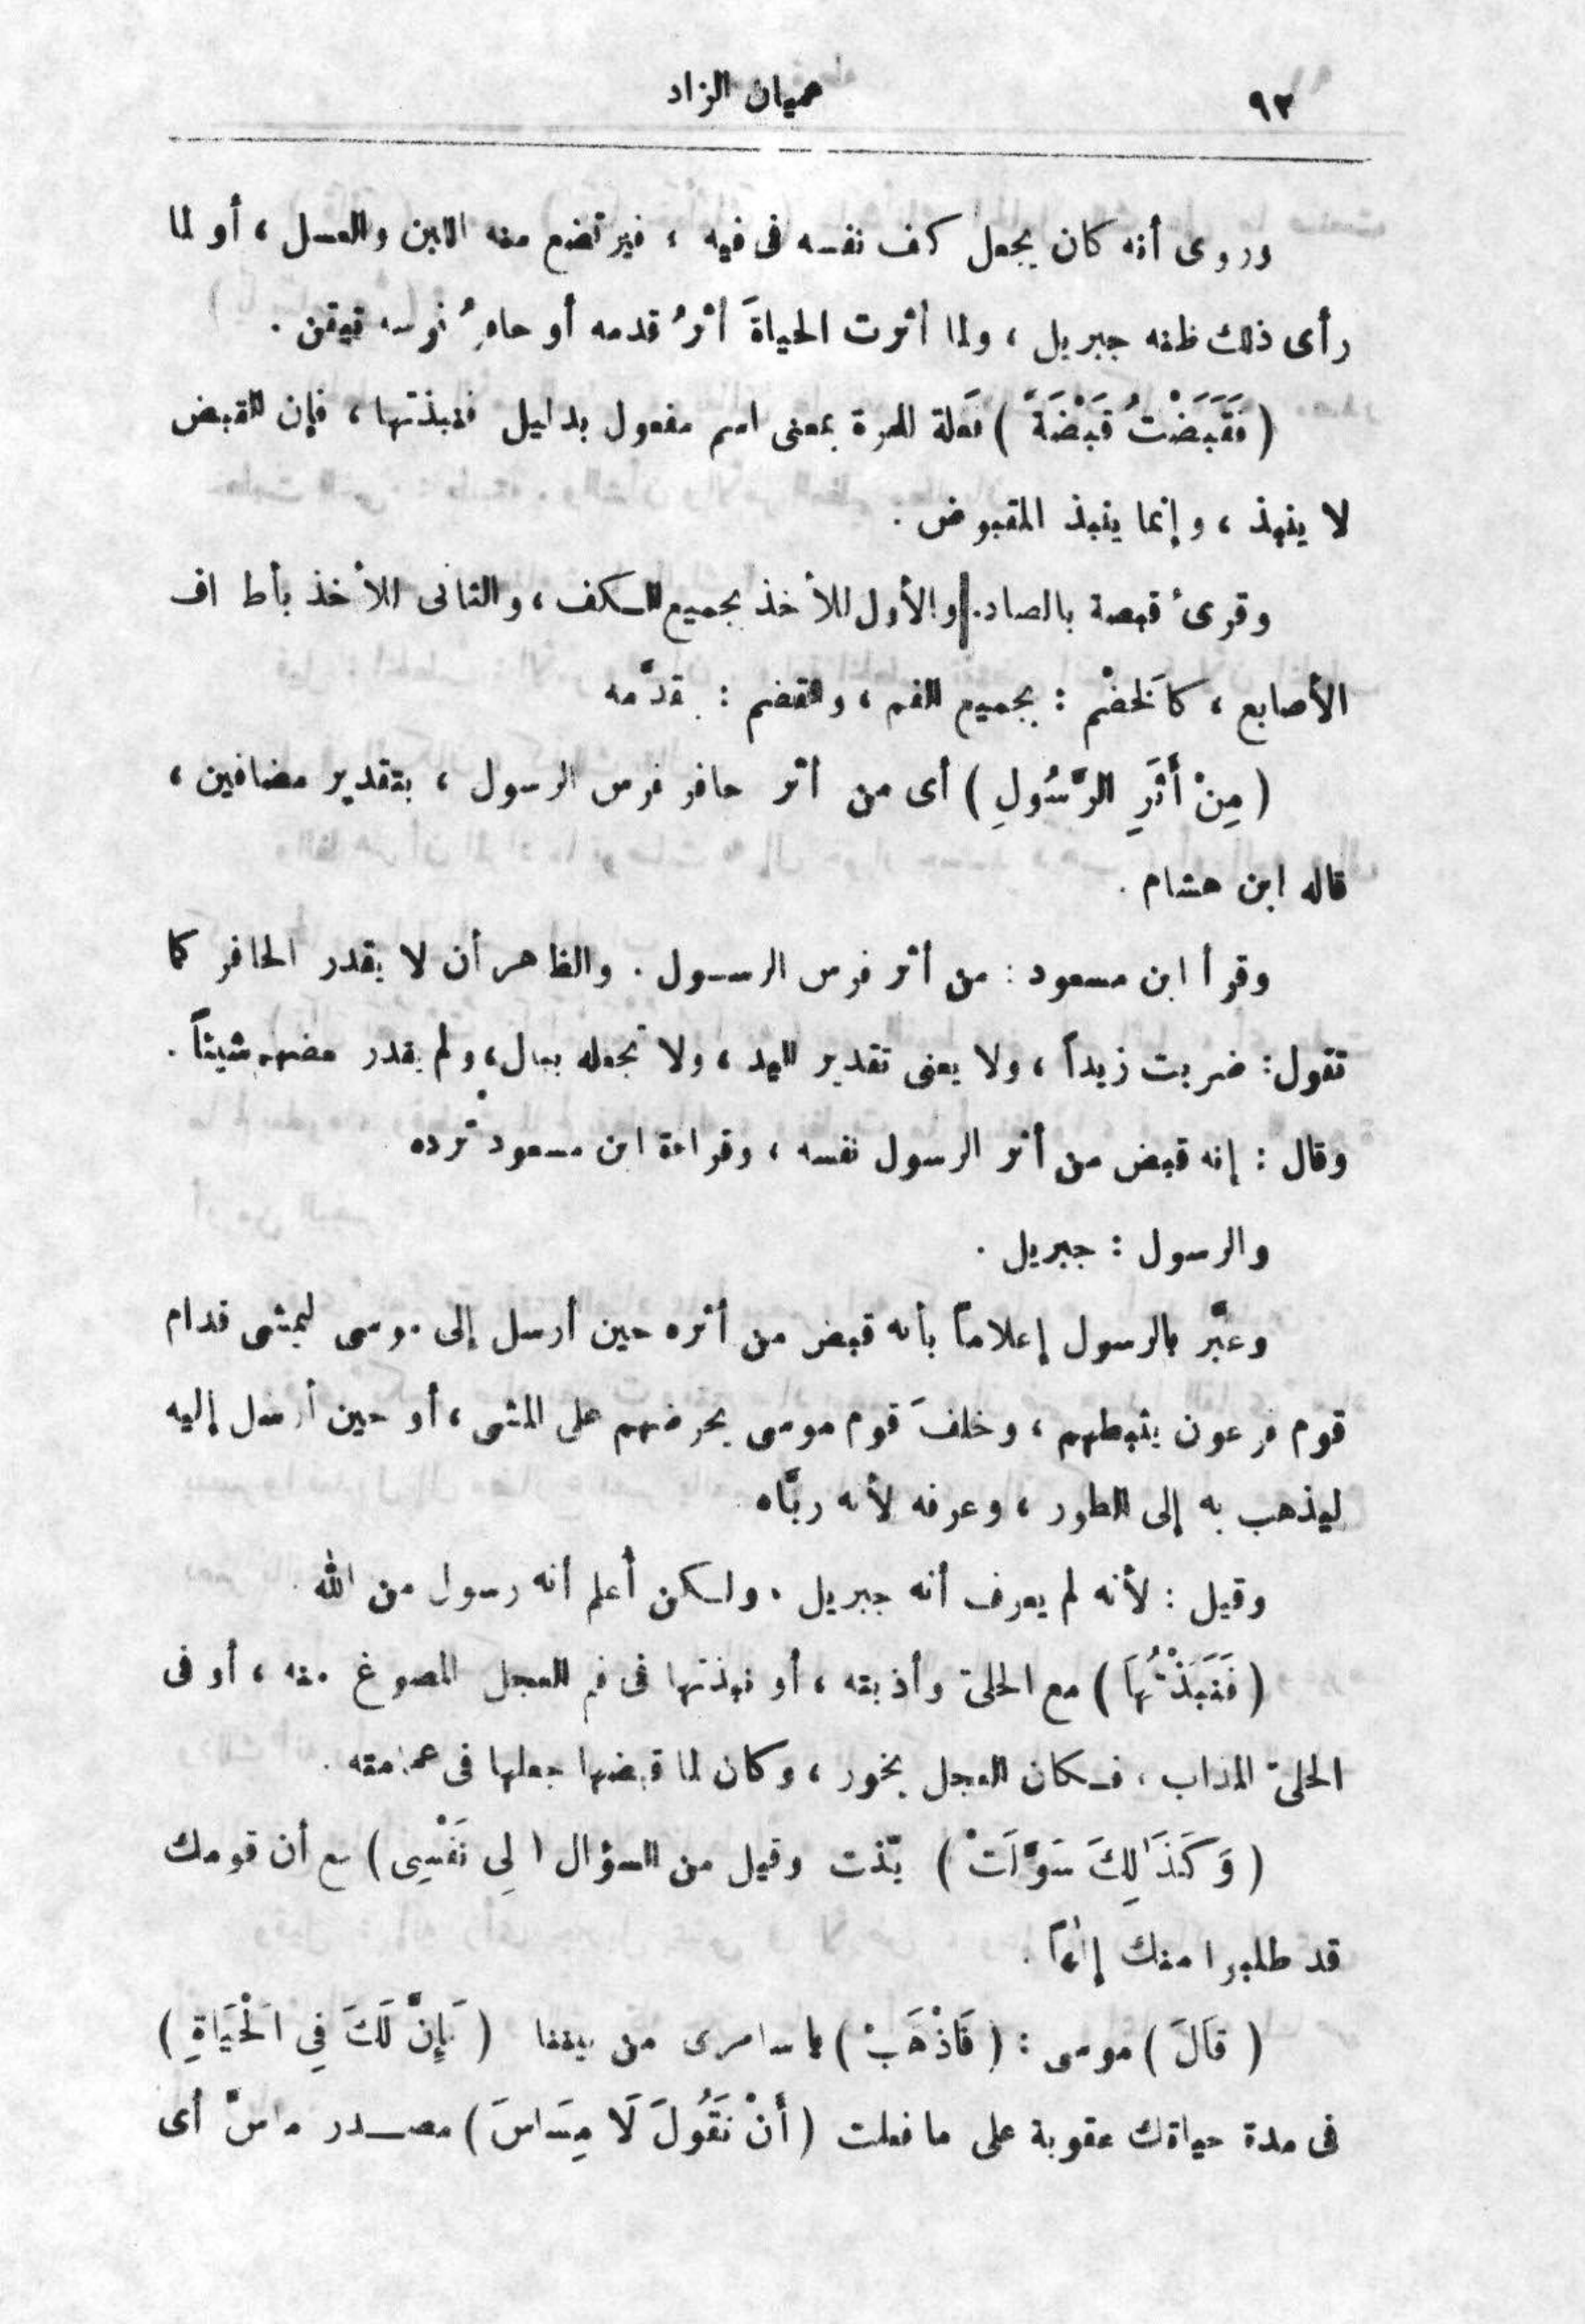 ٩٢
هميان الزاد
وروى أنه كان يجعل كف نفسه فى فيه ، فيرتضع منه اللبن والعسل ، أو لما
رأى ذلك ظنه جبريل ، ولما أثرت الحياةَ أثرُ قدمه أو حافرُ فرسه تيقن .
( فَقَبَضْتُ قَبْضَةً ) فَعلة للمرة بمعنى اسم مفعول بدليل فنبذتها ، فإن القبض
لا ينبذ ، وإنما ينبذ المقبوض .
وقرئ قبصة بالصاد . والأول للأخذ بجميع الكف ، والثانى للأخذ بأطراف
الأصابع ، كالخَضْم : بجميع الفم ، والقضم : بمقدَّمه
( مِنْ أَثَرِ الرَّسُولِ ) أى من أثر حافر فرس الرسول ، بتقدير مضافين ،
قاله ابن هشام .
وقرأ ابن مسعود : من أثر فرس الرسول . والظاهر أن لا يقدر الحافر كما
تقول : ضربت زيداً ، ولا يعنى تقدير اليد ، ولا تجعله ببال ، ولم يقدر بعضهم شيئاً .
وقال : إنه قبض من أثر الرسول نفسه ، وقراءة ابن مسعود تُرده
والرسول : جبريل .
وعبَّر بالرسول إعلاماً بأنه قبض من أثره حين أرسل إلى موسى ليمشى قدام
قوم فرعون يثبطهم ، وخلفَ قوم موسى يحرضهم على المشى ، أو حين أرسل إليه
ليذهب به إلى الطور ، وعرفه لأنه ربَّاه
وقيل : لأنه لم يعرف أنه جبريل . ولكن أعلم أنه رسول من الله .
( فَنَبَذْتُهَا ) مع الحلىّ وأذبته ، أو نبذتها فى فم العجل المصوغ منه ، أو فى
الحلىّ المذاب ، فكان العجل يخور ، وكان لما قبضها جعلها فى عمامته .
( وَكَذَٰلِكَ سَوَّلَتْ ) وقيل من السؤال ( لِى نَفْسِى ) مع أن قومك
قد طلبوا منك إلٰهاً .
( قَالَ ) موسى : ( فَاذْهَبْ ) يا سامرى من بيننا ( فَإِنَّ لَكَ فِى الْحَيَاةِ )
فى مدة حياتك عقوبة على ما فعلت ( أَنْ تَقُولَ لَا مِسَاسَ ) مصدر ماسّ أى